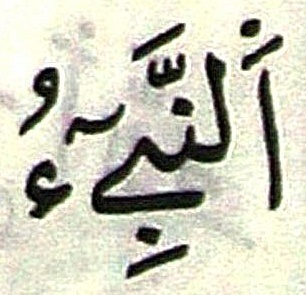 اَ۬لنَّبِےٓءُ